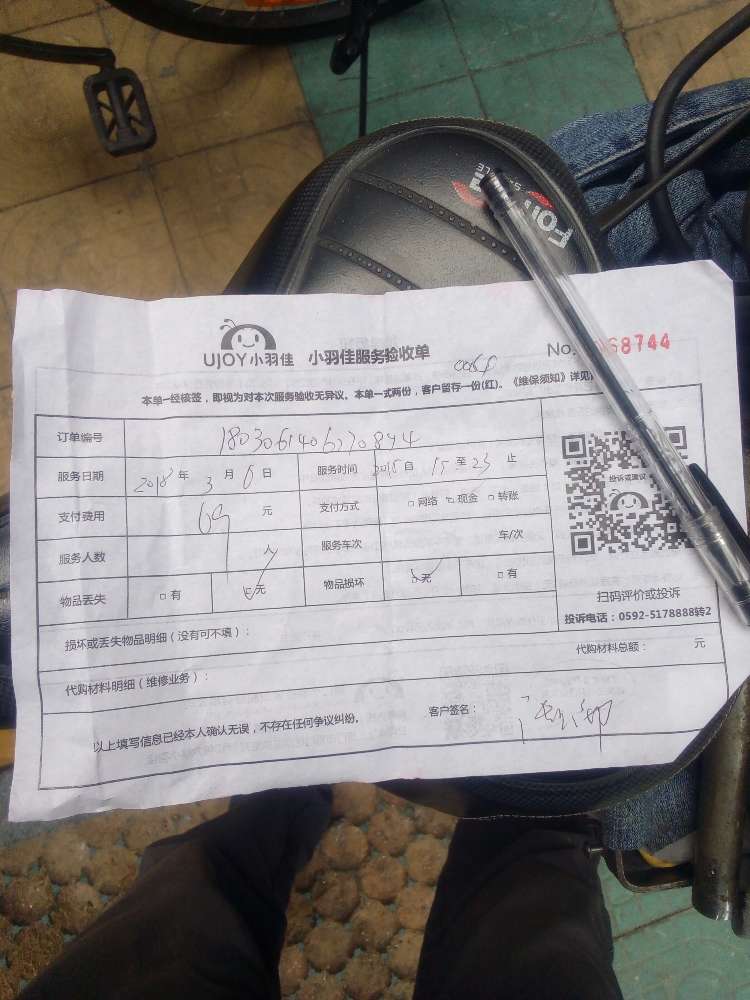 UJOY小羽佳 小羽佳服务验收单 No. 68744
本单一经核签，即视为对本次服务验收无异议。本单一式两份，客户留存一份(红)。《维保须知》详见
订单编号
服务日期 2018 年 3 月 6 日 服务时间 自 15 至 23 止
支付费用 69 元 支付方式 □网络 □现金 □转账
服务人数 1 人 服务车次 车/次
物品丢失 □有 □无 物品损坏 □无 □有
投诉或建议
扫码评价或投诉
投诉电话：0592-5178888转2
损坏或丢失物品明细（没有可不填）：
代购材料明细（维修业务）： 代购材料总额： 元
以上填写信息已经本人确认无误，不存在任何争议纠纷。 客户签名：